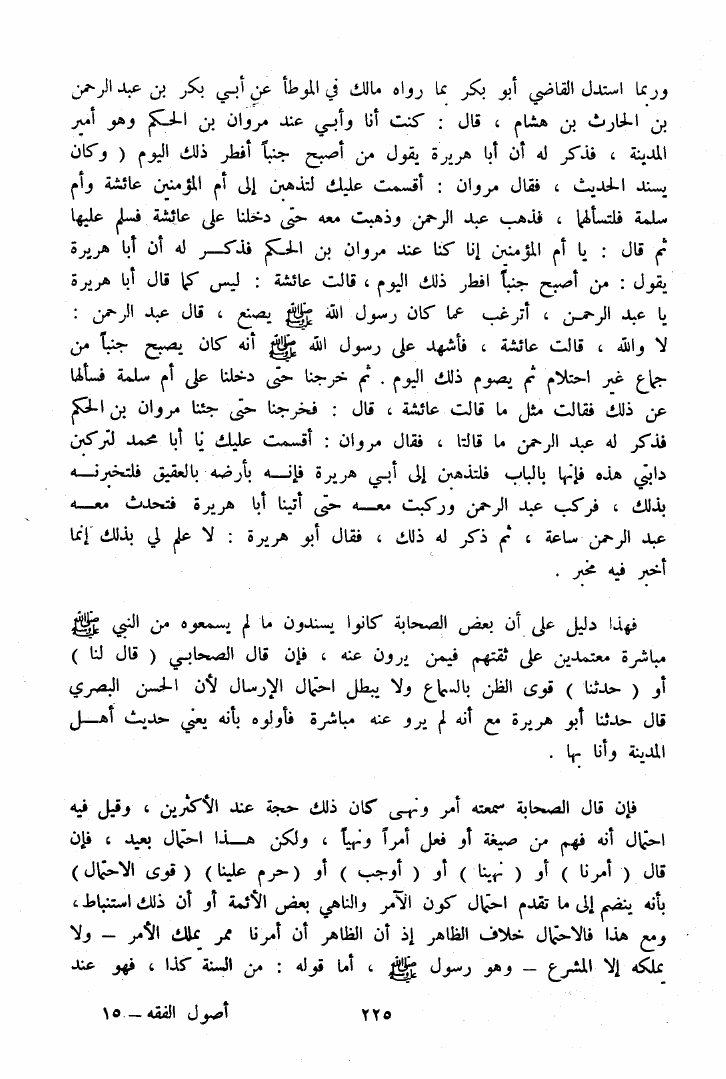 وربما استدل القاضي أبو بكر بما رواه مالك في الموطأ عن أبي بكر بن عبد الرحمن
بن الحارث بن هشام ، قال : كنت أنا وأبي عند مروان بن الحكم وهو أمير
المدينة ، فذكر له أن أبا هريرة يقول من أصبح جنباً أفطر ذلك اليوم ( وكان
يسند الحديث ، فقال مروان : أقسمت عليك لتذهبن إلى أم المؤمنين عائشة وأم
سلمة فلتسألها ، فذهب عبد الرحمن وذهبت معه حتى دخلنا على عائشة فسلم عليها
ثم قال : يا أم المؤمنين إنا كنا عند مروان بن الحكم فذكر له أن أبا هريرة
يقول : من أصبح جنباً افطر ذلك اليوم ، قالت عائشة : ليس كما قال أبا هريرة
يا عبد الرحمن ، أترغب عما كان رسول الله ﷺ يصنع ، قال عبد الرحمن :
لا والله ، قالت عائشة ، فأشهد على رسول الله ﷺ أنه كان يصبح جنباً من
جماع غير احتلام ثم يصوم ذلك اليوم . ثم خرجنا حتى دخلنا على أم سلمة فسألها
عن ذلك فقالت مثل ما قالت عائشة ، قال : فخرجنا حتى جئنا مروان بن الحكم
فذكر له عبد الرحمن ما قالتا ، فقال مروان : أقسمت عليك يا أبا محمد لتركبن
دابتي هذه فإنها بالباب فلتذهبن إلى أبي هريرة فإنه بأرضه بالعقيق فلتخبرنه
بذلك ، فركب عبد الرحمن وركبت معه حتى أتينا أبا هريرة فتحدث معه
عبد الرحمن ساعة ، ثم ذكر له ذلك ، فقال أبو هريرة : لا علم لي بذلك إنما
أخبر فيه مخبر .
فهذا دليل على أن بعض الصحابة كانوا يسندون ما لم يسمعوه من النبي ﷺ
مباشرة معتمدين على ثقتهم فيمن يرون عنه ، فإن قال الصحابي ( قال لنا )
أو ( حدثنا ) قوى الظن بالسماع ولا يبطل احتمال الإرسال لأن الحسن البصري
قال حدثنا أبو هريرة مع أنه لم يرو عنه مباشرة فأولوه بأنه يعني حديث أهل
المدينة وأنا بها .
فإن قال الصحابة سمعته أمر ونهى كان ذلك حجة عند الأكثرين ، وقيل فيه
احتمال أنه فهم من صيغة أو فعل أمراً ونهياً ، ولكن هذا احتمال بعيد ، فإن
قال ( أمرنا ) أو ( نهينا ) أو ( أوجب ) أو (حرم علينا) ( قوى الاحتمال)
بأنه ينضم إلى ما تقدم احتمال كون الآمر والناهي بعض الأئمة أو أن ذلك استنباط،
ومع هذا فالاحتمال خلاف الظاهر إذ أن الظاهر أن أمرنا ممر يملك الأمر – ولا
يملكه إلا المشرع – وهو رسول ﷺ ، أما قوله : من السنة كذا ، فهو عند
٢٢٥
أصول الفقه – ١٥